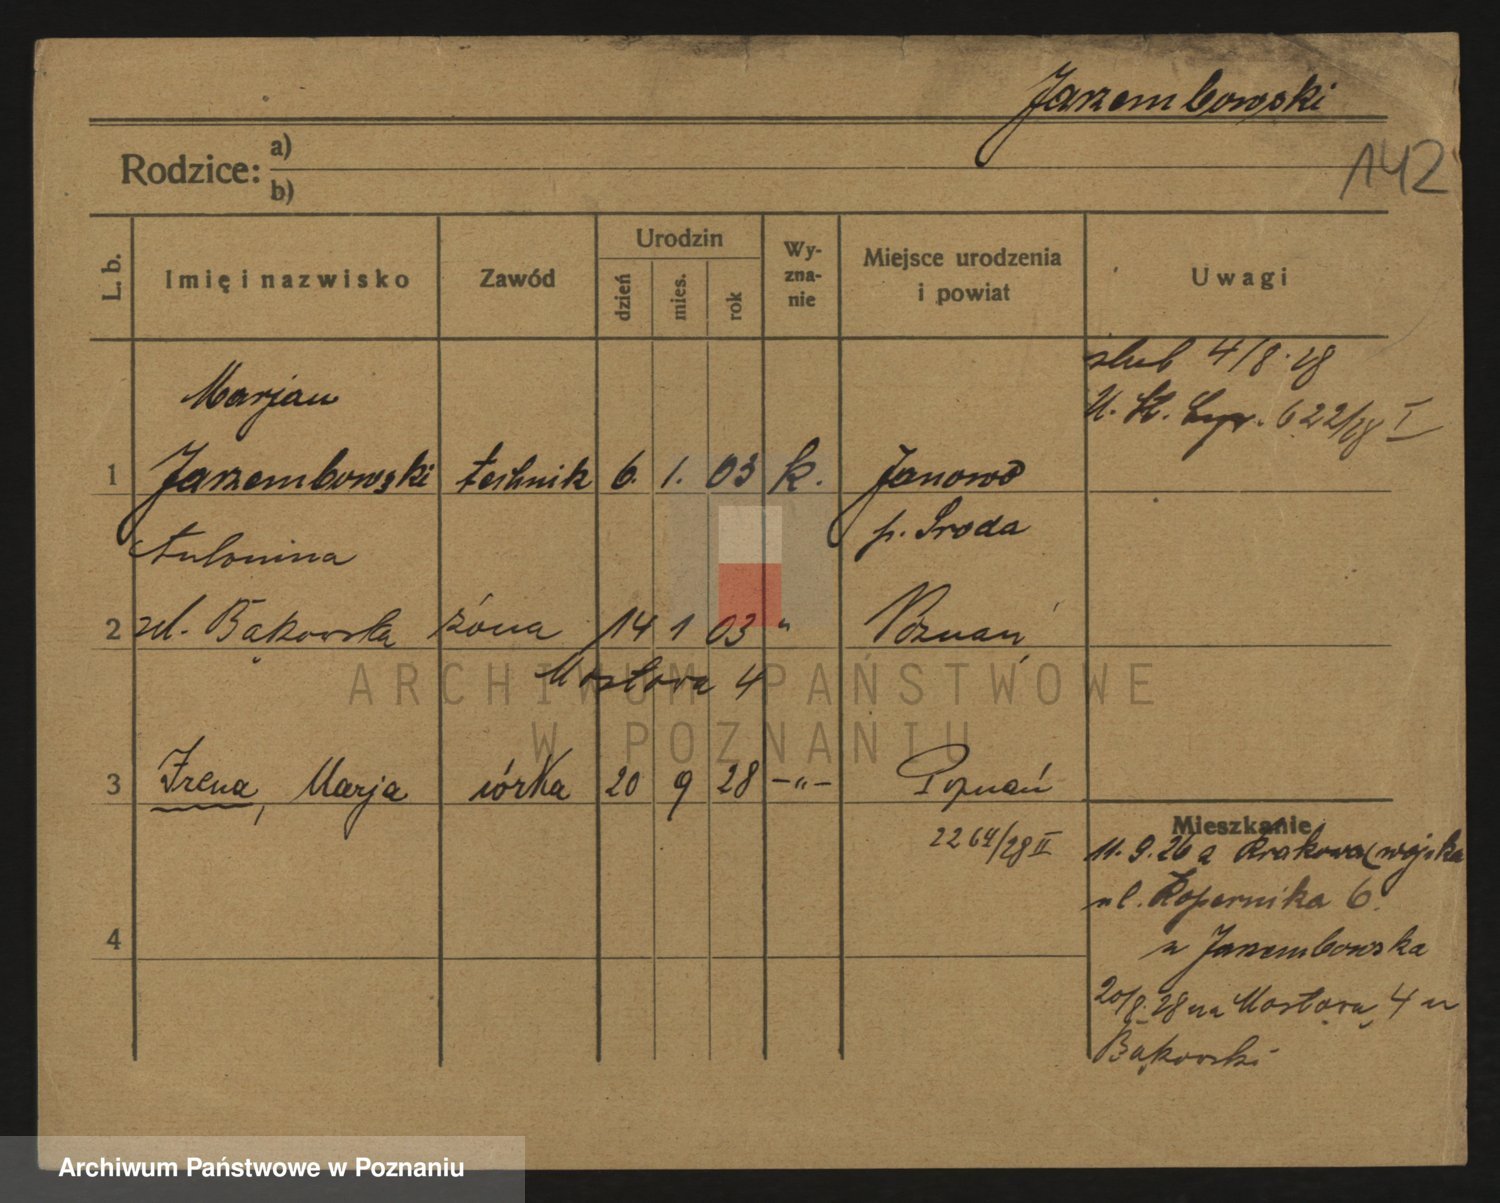 Jarzembowski
142
Rodzice: a)
b)
L. b. Imię i nazwisko Zawód Urodzin dzień mies. rok Wyznanie Miejsce urodzenia i powiat Uwagi
ślub 4/8.28
U. St. 622/28 I
Marjan
1 Jarzembowski technik 6. 1. 03 k. Janowo
p. Środa
Antonina
2 zd. Bąkowska żona 14 1 03 " Poznań
Mostowa 4
3 Irena, Marja córka 20 9 28 -"- Poznań
2264/28 II
Mieszkanie
11.9.26 z Krakowa (wojska
ul. Kopernika 6.
u Jarzembowska
20/8.28 na Mostową 4 u
Bąkowski
4
ARCHIWUM PAŃSTWOWE
W POZNANIU
Archiwum Państwowe w Poznaniu